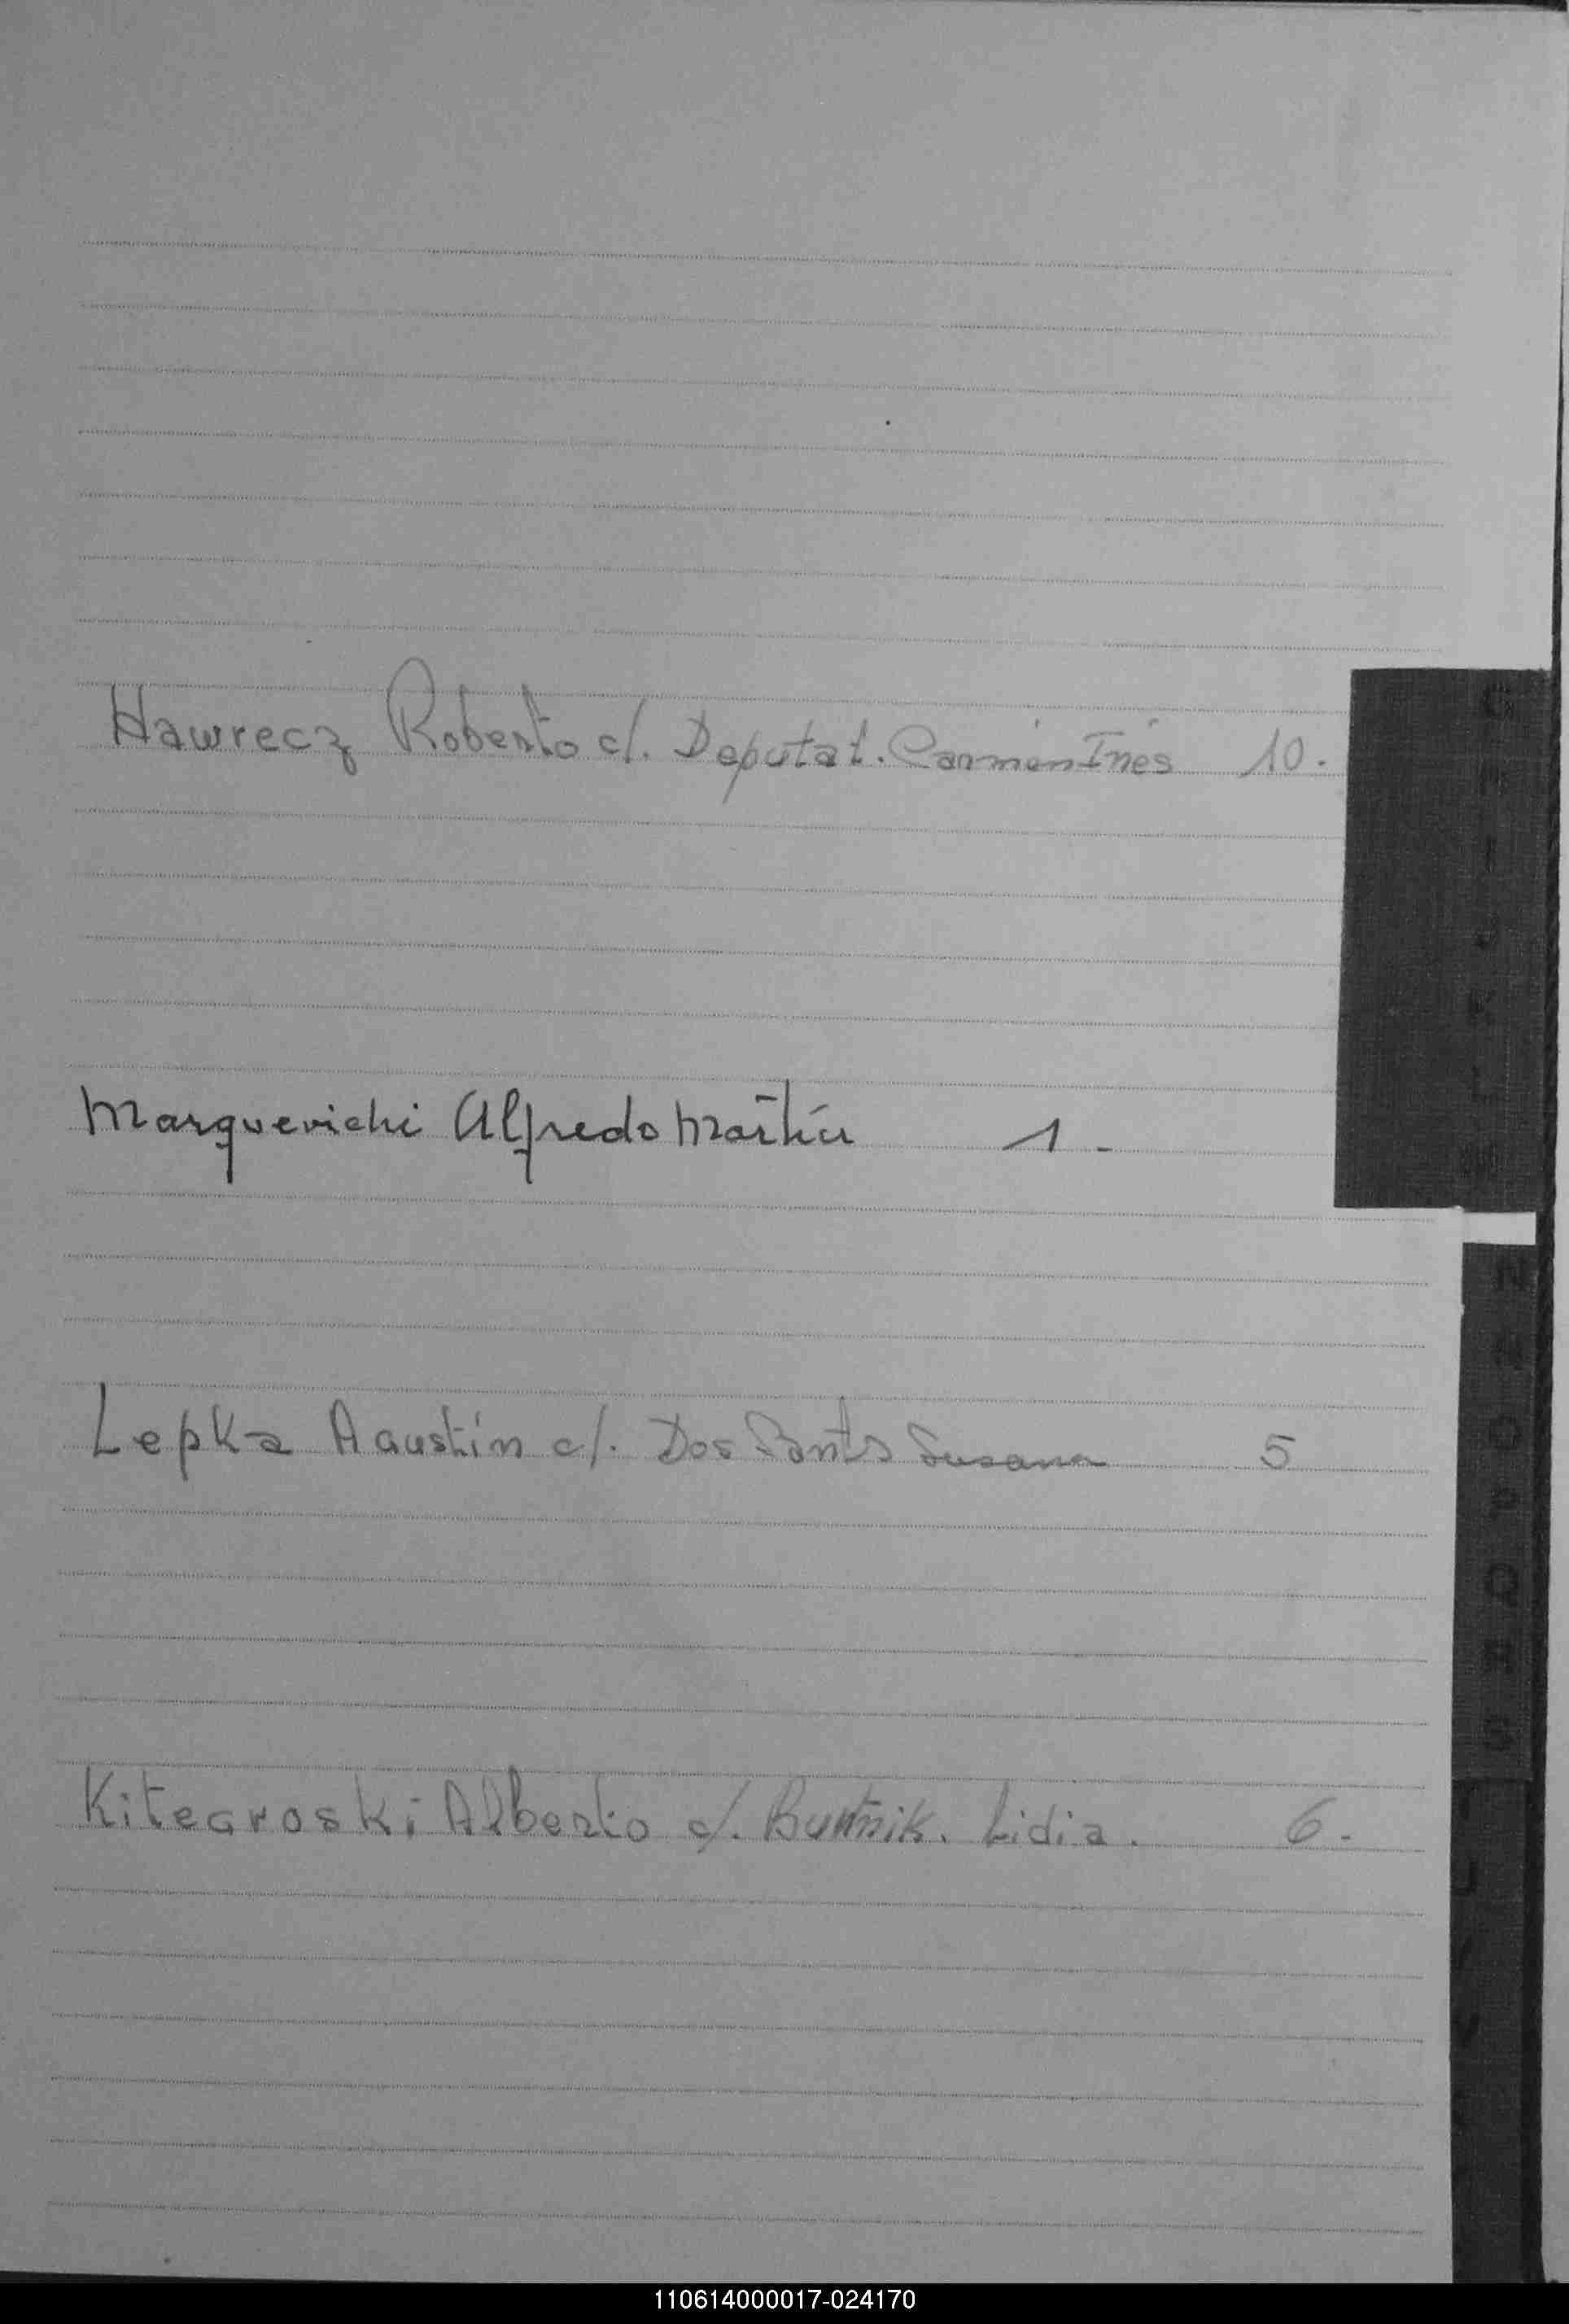 Hawrecz Roberto c/. Deputat. Carmen Inés 10.
Marguevichi Alfredo Martín 1.-
Lepka Agustín c/. Dos Santos Susana 5
Kitegroski Alberto c/. Budnik. Lidia. 6.-
110614000017-024170